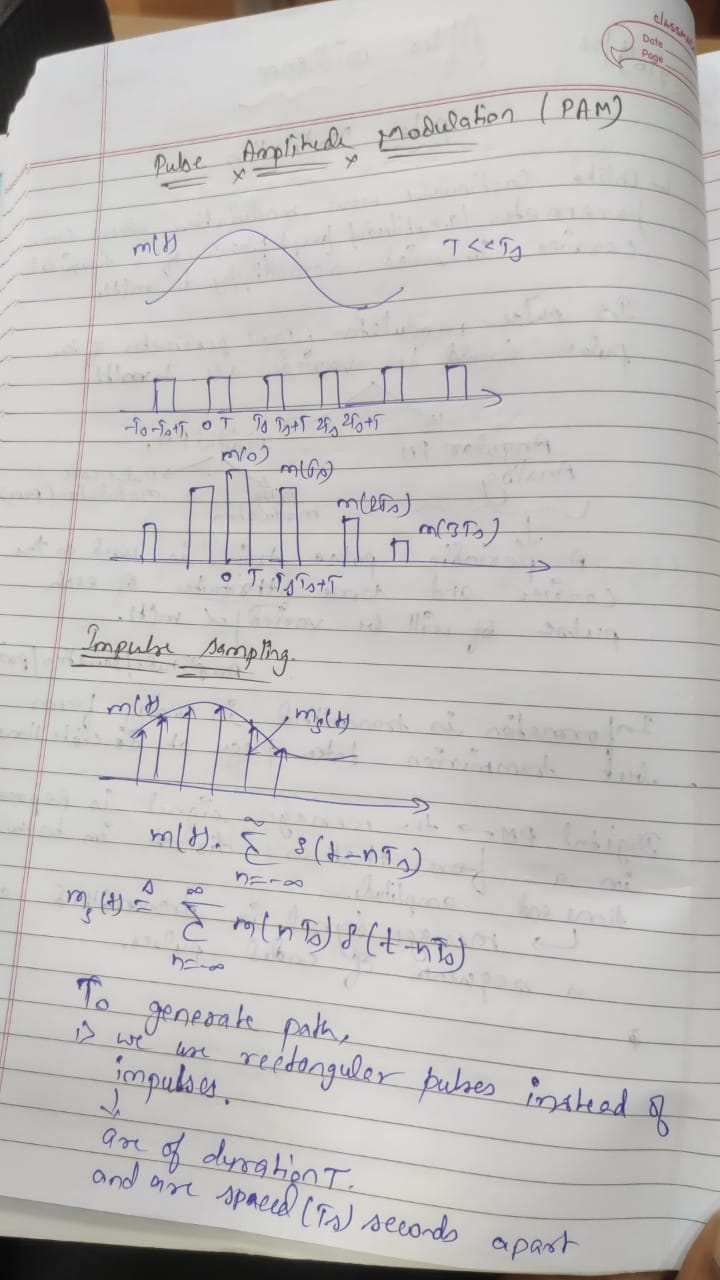 classmate
Date
Page
Pulse Amplitude Modulation (PAM)
m(t)
T << Ts
-Ts -Ts+T 0 T Ts Ts+T 2Ts 2Ts+T
m(0)
m(Ts)
m(2Ts)
m(3Ts)
0 T Ts Ts+T
Impulse sampling.
m(t)
mδ(t)
m(t). ∞Σn=-∞ δ(t-nTs)
mδ(t) ≜ ∞Σn=-∞ m(nTs) δ(t-nTs)
To generate path,
1) we use rectangular pulses instead of
impulses.
↓
are of duration T.
and are spaced (Ts) seconds apart